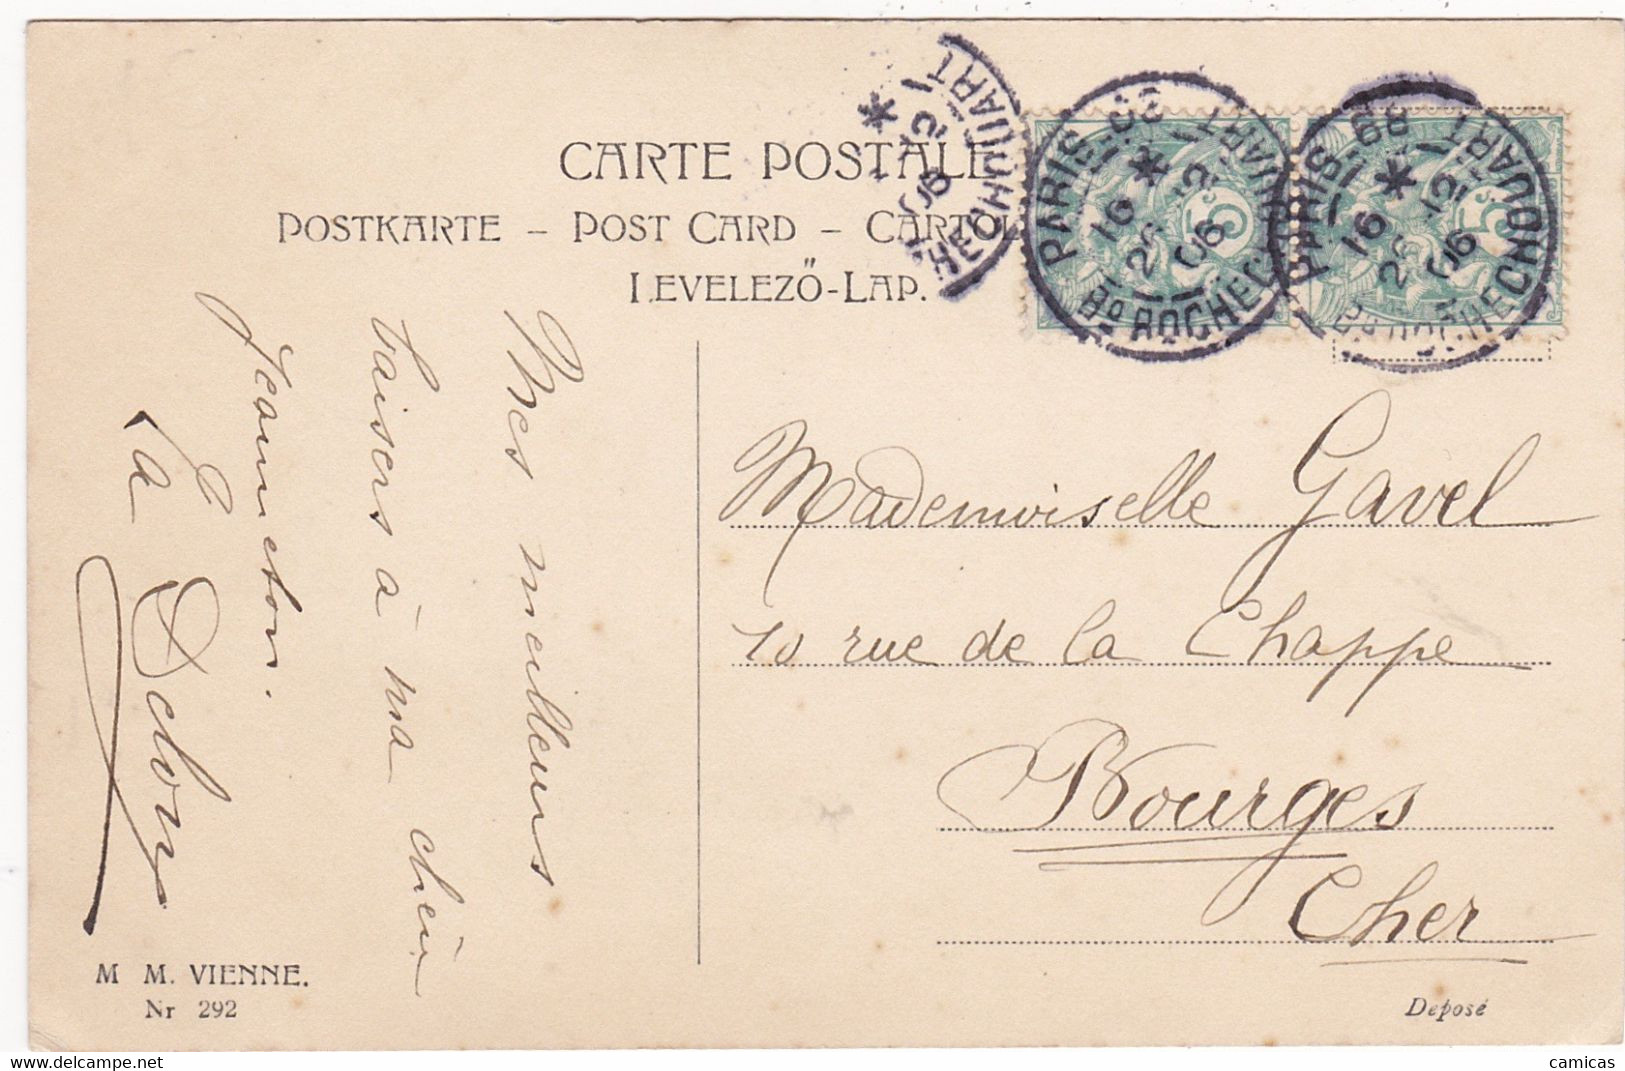 CARTE POSTALE
POSTKARTE – POST CARD – CARTOL
LEVELEZŐ-LAP.
PARIS-89
16 *
26 12
06
Bd ROCHECHOUART
PARIS-89
16 *
26 12
06
Bd ROCHECHOUART
* 12
06
HECHOUART
5
5
Mes meilleurs
baisers à ma
Jeanneton.
La
Mademoiselle Gavel
10 rue de la Chappe
Bourges
Cher
M M. VIENNE.
Nr 292
Deposé
delcampe.net
camicas